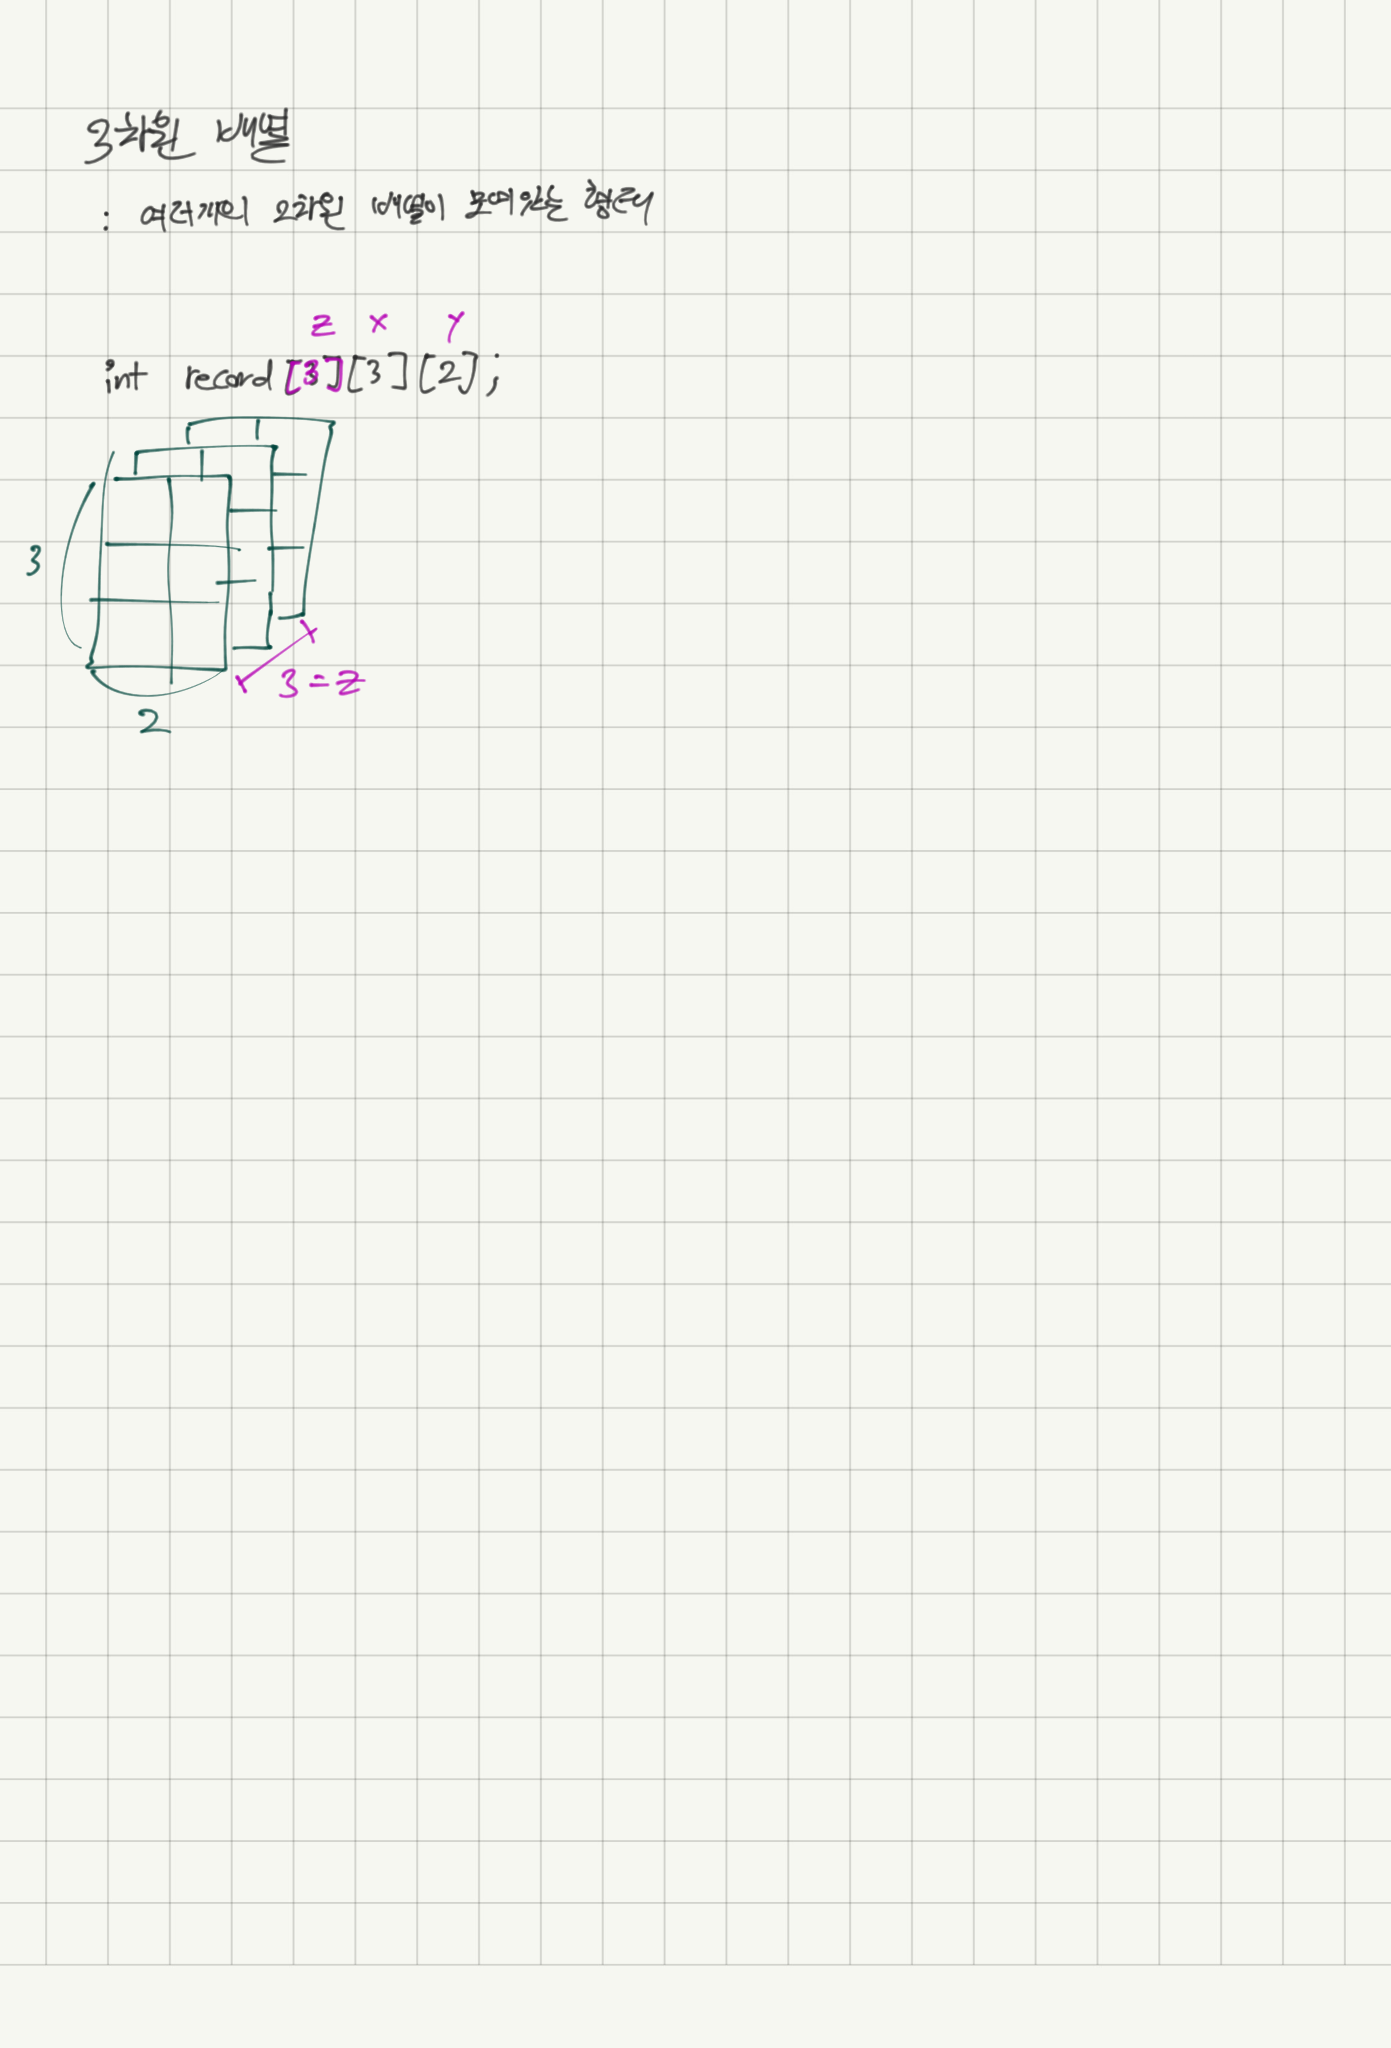 3차원 배열
: 여러개의 2차원 배열이 모여있는 형태
z x y
int record[3][3][2];
3
3=z
2